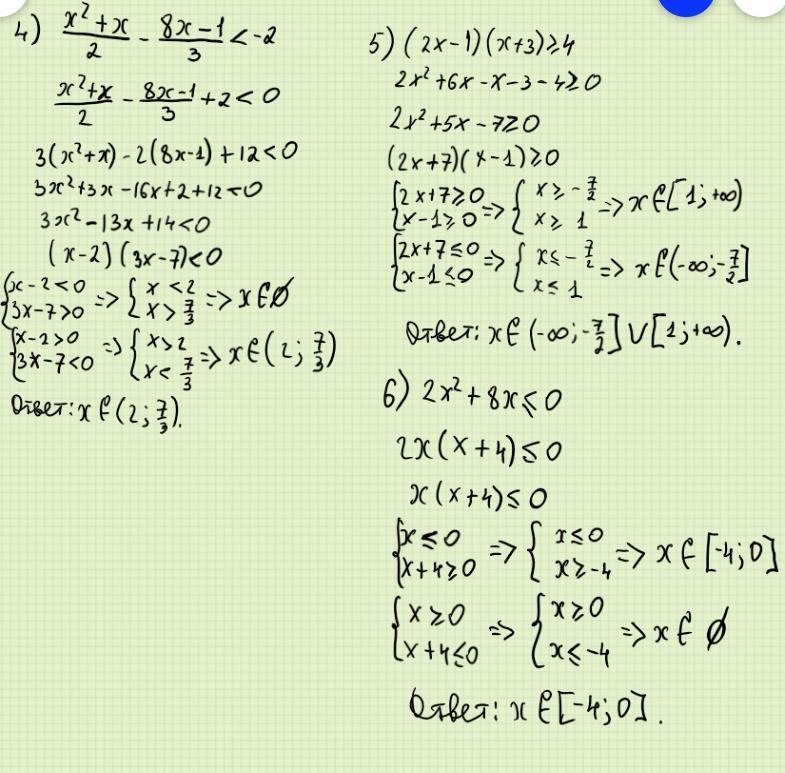 4) (x²+x)/2 - (8x-1)/3 < -2
(x²+x)/2 - (8x-1)/3 + 2 < 0
3(x²+x) - 2(8x-1) + 12 < 0
3x²+3x -16x+2+12<0
3x²-13x+14<0
(x-2)(3x-7)<0
{x-2<0 3x-7>0 => {x<2 x>7/3 => x∈∅
{x-2>0 3x-7<0 => {x>2 x<7/3 => x∈(2; 7/3)
Ответ: x∈(2; 7/3).
5) (2x-1)(x+3)≥4
2x²+6x-x-3-4≥0
2x²+5x-7≥0
(2x+7)(x-1)≥0
{2x+7≥0 x-1≥0 => {x≥-7/2 x≥1 => x∈[1;+∞)
{2x+7≤0 x-1≤0 => {x≤-7/2 x≤1 => x∈(-∞;-7/2]
Ответ: x∈(-∞;-7/2]∪[1;+∞).
6) 2x²+8x≤0
2x(x+4)≤0
x(x+4)≤0
{x≤0 x+4≥0 => {x≤0 x≥-4 => x∈[-4;0]
{x≥0 x+4≤0 => {x≥0 x≤-4 => x∈∅
Ответ: x∈[-4;0].